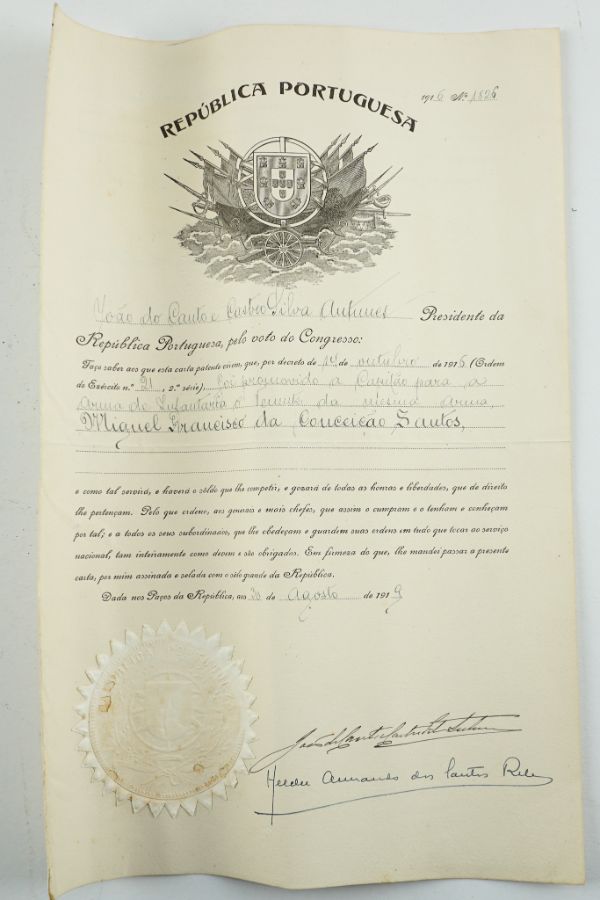 REPÚBLICA PORTUGUESA
1916 Nº 1826
João do Canto e Castro Silva Antunes Presidente da
República Portuguesa, pelo voto do Congresso:
Faço saber aos que esta carta patente virem, que, por decreto de 14 de outubro de 1916 (Ordem
de Exército n.º 21, 2.ª série), foi promovido a Capitão para a
arma de Infantaria o tenente da mesma arma,
Miguel Francisco da Conceição Santos,
e como tal servirá, e haverá o sôldo que lhe competir, e gozará de todas as honras e liberdades, que de direito
lhe pertençam. Pelo que ordeno, aos generais e mais chefes, que assim o cumpram e o tenham e conheçam
por tal; e a todos os seus subordinados, que lhe obedeçam e guardem suas ordens em tudo que tocar ao serviço
nacional, tam inteiramente como devem e são obrigados. Em firmeza do que, lhe mandei passar a presente
carta, por mim assinada e selada com o sêlo grande da República.
Dada nos Paços da República, aos 30 de Agosto de 1919
João do Canto e Castro Silva Antunes
Helder Armando dos Santos Ribeiro